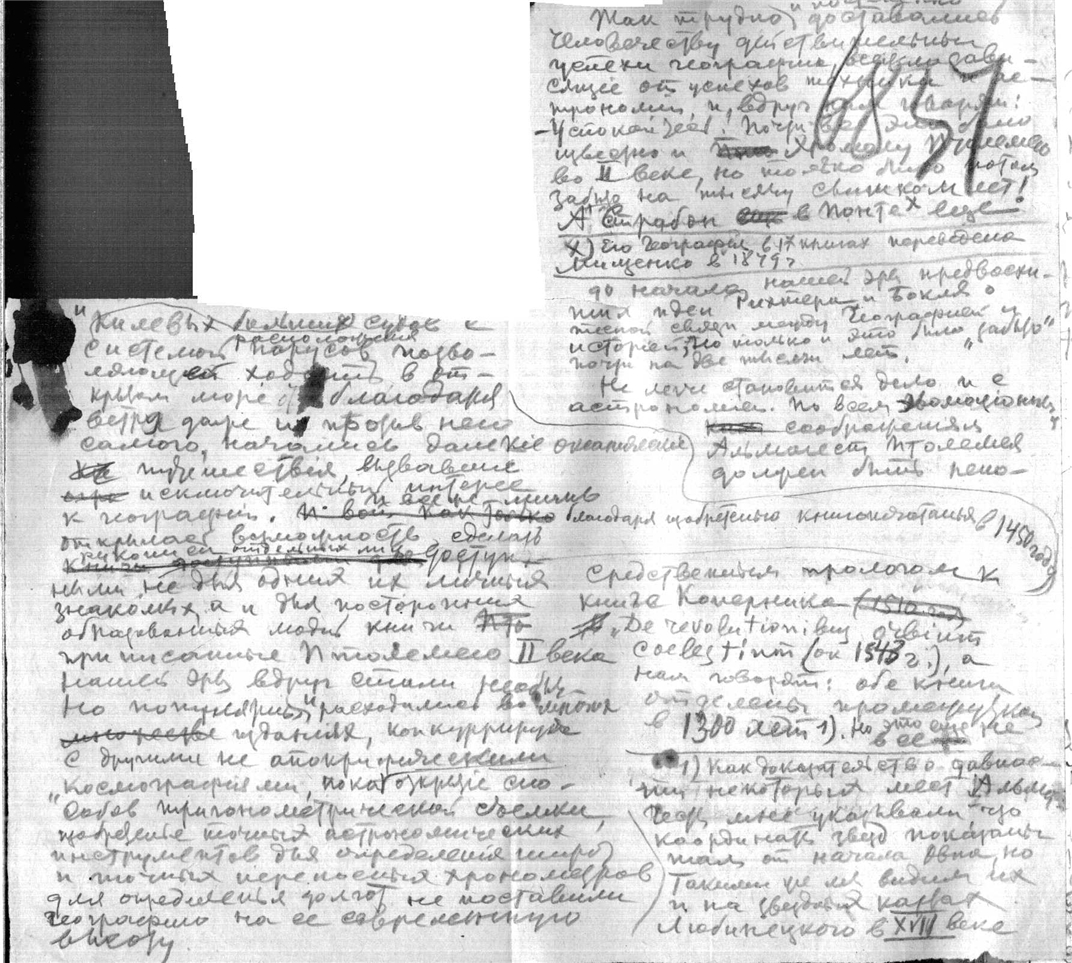 Как трудно доставались
человечеству действительные
успехи географии, всецело зави-
сящее от успехов техники и ас-
трономии, и, вдруг нам говорят:
- Успокойтесь! Почти все это было
известно и Хромому Птолемею
во II веке, но только было потом
забыто на тысячу слишком лет!
А Страбон еще в Понте х еще
х) Его География в 17 книгах переведена
Мищенко в 1879 г
до начала нашей эры предвосхи-
тил идеи Рихтера и Бокля о
тесной связи между Географией и
историей, но только и это было "забыто"
почти на две тысячи лет.
Не легче становится дело и с
астрономией. По всем эволюционным
соображениям
Альмагест Птолемея
должен быть непо-
средственным прологом к
книге Коперника (1510 г)
"De revolutionibus orbium
coelestium (ок 1543 г.), а
нам говорят: обе книги
отделены промежутком
в 1300 лет 1). Но это еще не
все
1) Как доказательство давнос-
ти некоторых мест Альма-
геста мне указывали что
координаты звезд показаны
там от начала Овна, но
Такими же мы видим их
и на звездных картах
Любинецкого в XVII веке
"Килевых больших судов с
системой расположения парусов позво-
ляющей ходить в от-
крытом море благодаря
ветру даже и против него
самого, начались далекие океанические
путешествия вызвавшие
исключительный интерес
к географии. И вот как только благодаря изобретению книгопечатанья в 1450 году
открылась возможность сделать
рукописи отдельных лиц доступ-
ными не для одних их личных
знакомых, а и для посторонних
образованных людей книги
приписанные Птолемею II века
нашей эры вдруг стали необы-
но популярны и расходились во многих
множестве изданиях, конкурируя
с другими не апокрифическими
космографиями, пока открытие спо-
"собов тригонометрической съемки,
изобретение точных астрономических
инструментов для определения широт
и точных переносных хронометров
для определенья долгот не поставили
географию на ее современную
высоту
6857